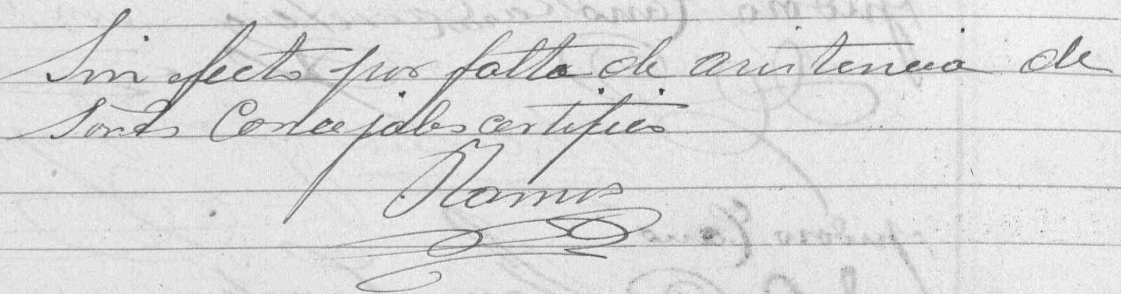 Sin efecto por falta de asistencia de
Sores Concejales certifico
Ramos